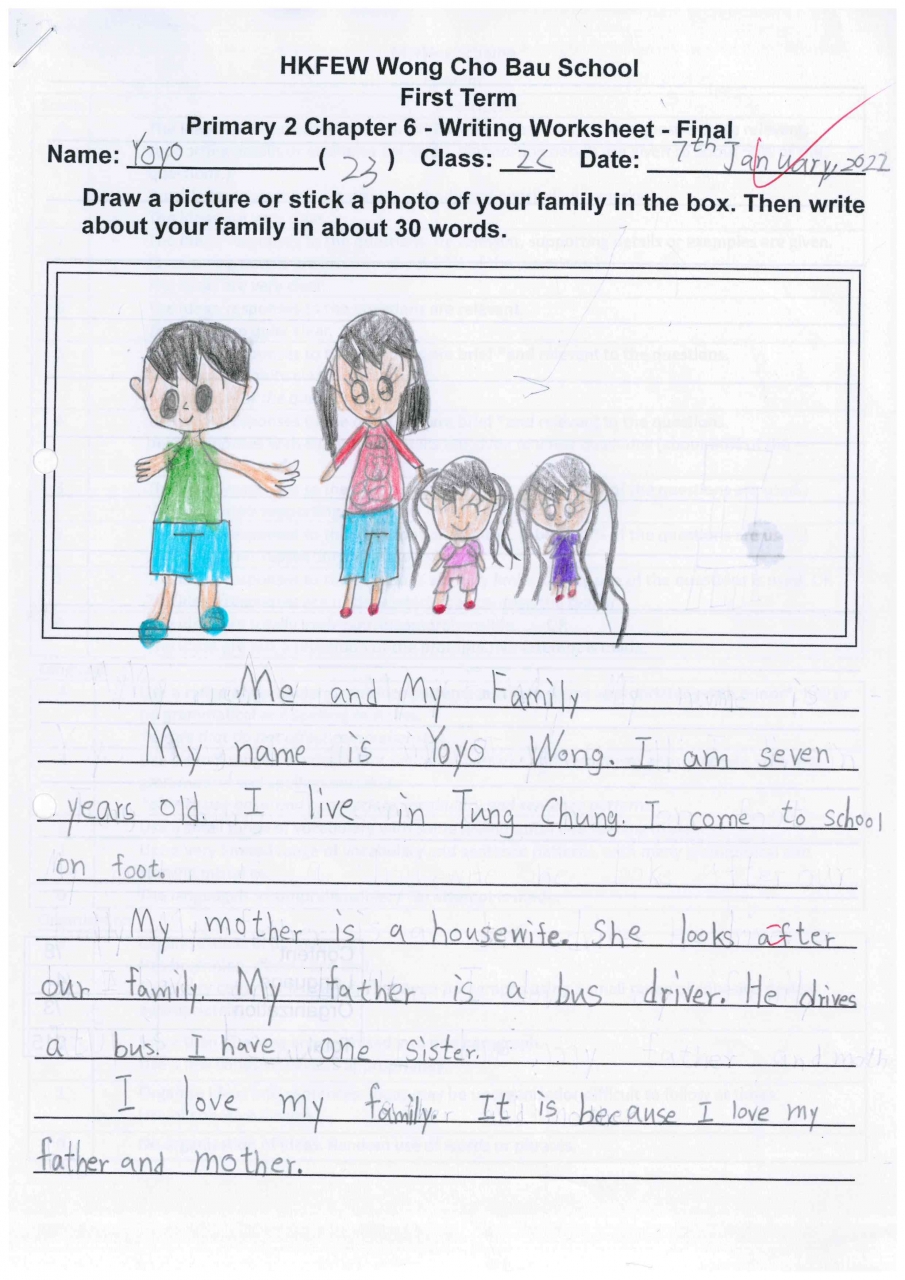 HKFEW Wong Cho Bau School
First Term
Primary 2 Chapter 6 - Writing Worksheet - Final
Name: Yoyo ( 23 ) Class: 2C Date: 7th January, 2022
Draw a picture or stick a photo of your family in the box. Then write
about your family in about 30 words.
Me and My Family
My name is Yoyo Wong. I am seven
years old. I live in Tung Chung. I come to school
on foot.
My mother is a housewife. She looks after
our family. My father is a bus driver. He drives
a bus. I have one sister.
I love my family. It is because I love my
father and mother.